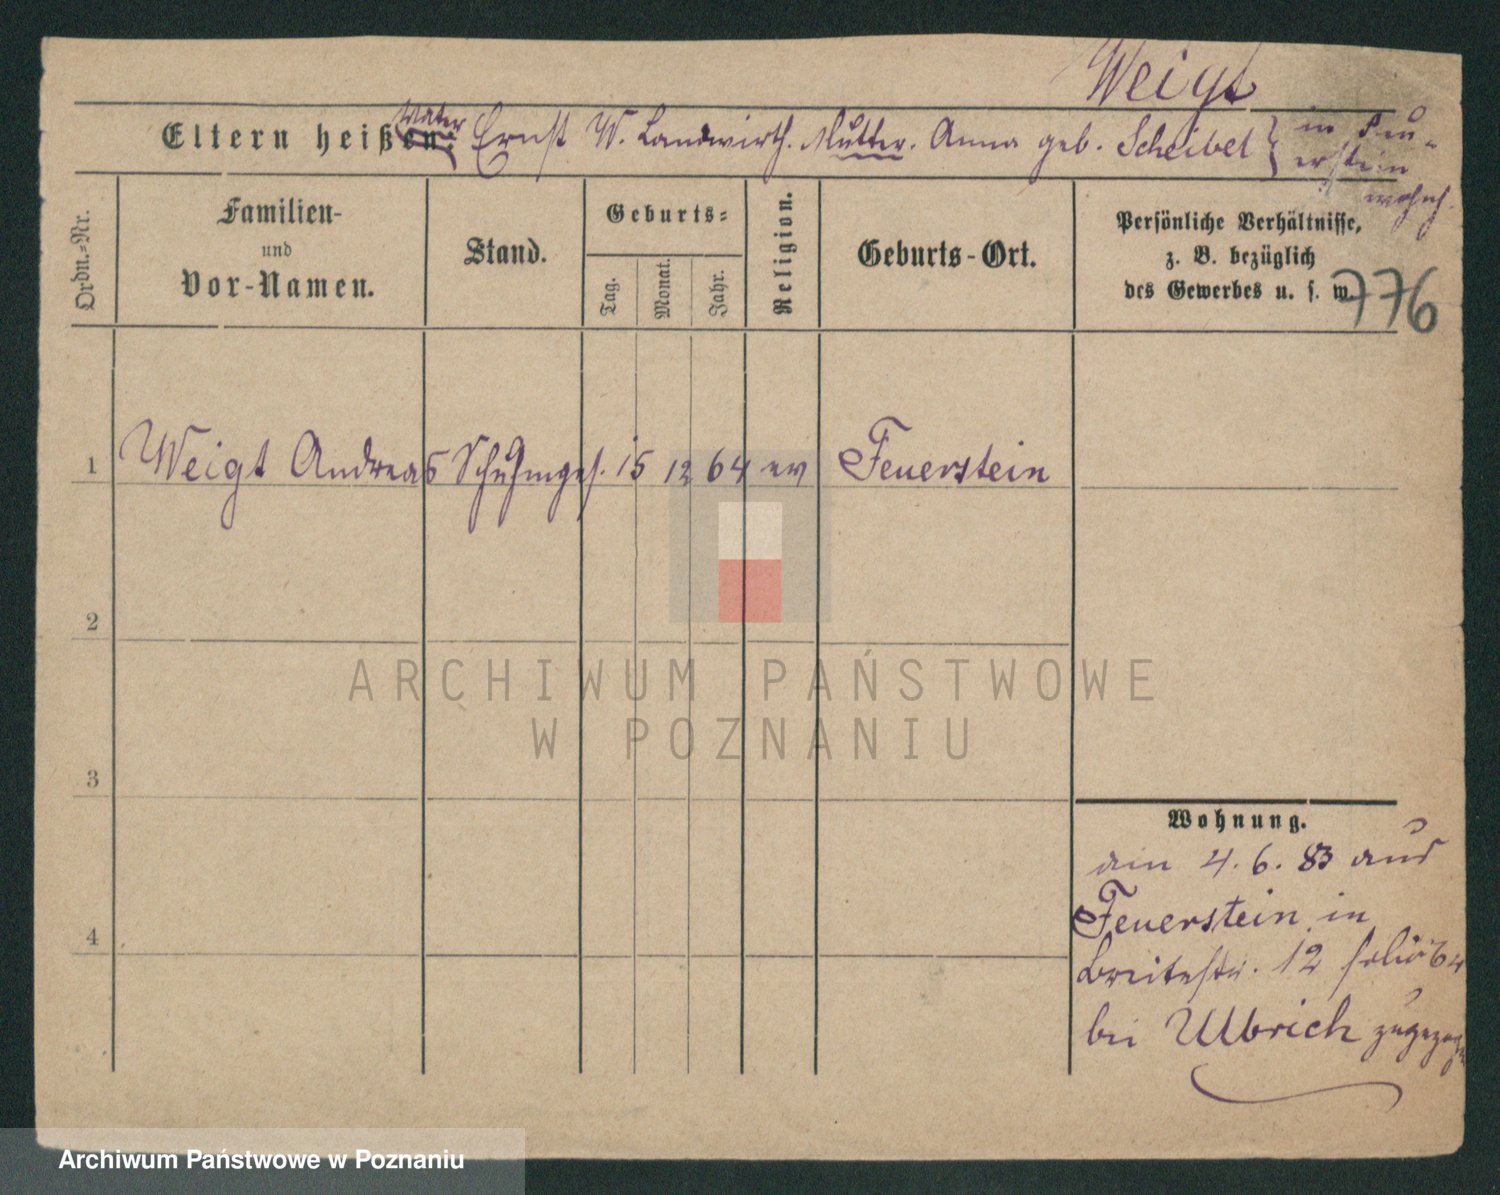 Weigt
Eltern heißen: Vater Ernst W. Landwirth. Mutter. Anna geb. Scheibel } in Feu-
erstein
wohnh.
Ordn.-Nr.
Familien-
und
Vor-Namen.
Stand.
Geburts-
Tag.
Monat.
Jahr.
Religion.
Geburts-Ort.
Persönliche Verhältnisse,
z. B. bezüglich
des Gewerbes u. s. w.
776
1 Weigt Andreas Schuhmges. 15 12 64 ev Feuerstein
2
3
4
Wohnung.
am 4. 6. 83 aus
Feuerstein in
Breitestr. 12 64
bei Ulbrich zugezogen
ARCHIWUM PAŃSTWOWE
W POZNANIU
Archiwum Państwowe w Poznaniu